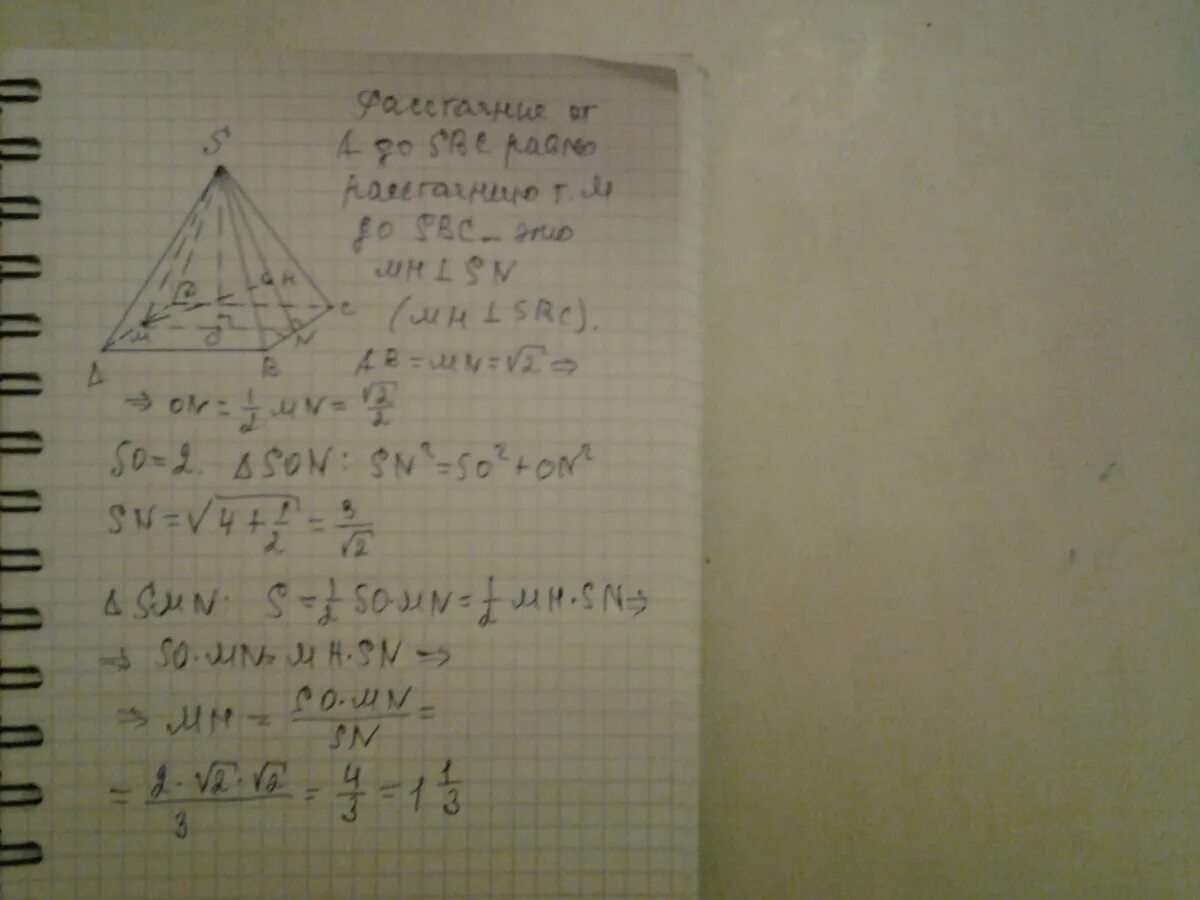 Расстояние от
A до SBC равно
расстоянию т. M
до SBC – это
MH ⊥ SN
(MH ⊥ SBC).
S
D
H
C
M
O
N
A
B
AB = MN = √2 ⇒
⇒ ON = 1/2 MN = √2/2
SO = 2. ΔSON: SN² = SO² + ON²
SN = √(4 + 1/2) = 3/√2
ΔSMN. S = 1/2 SO·MN = 1/2 MH·SN ⇒
⇒ SO·MN = MH·SN ⇒
⇒ MH = SO·MN/SN =
= 2·√2·√2/3 = 4/3 = 1 1/3